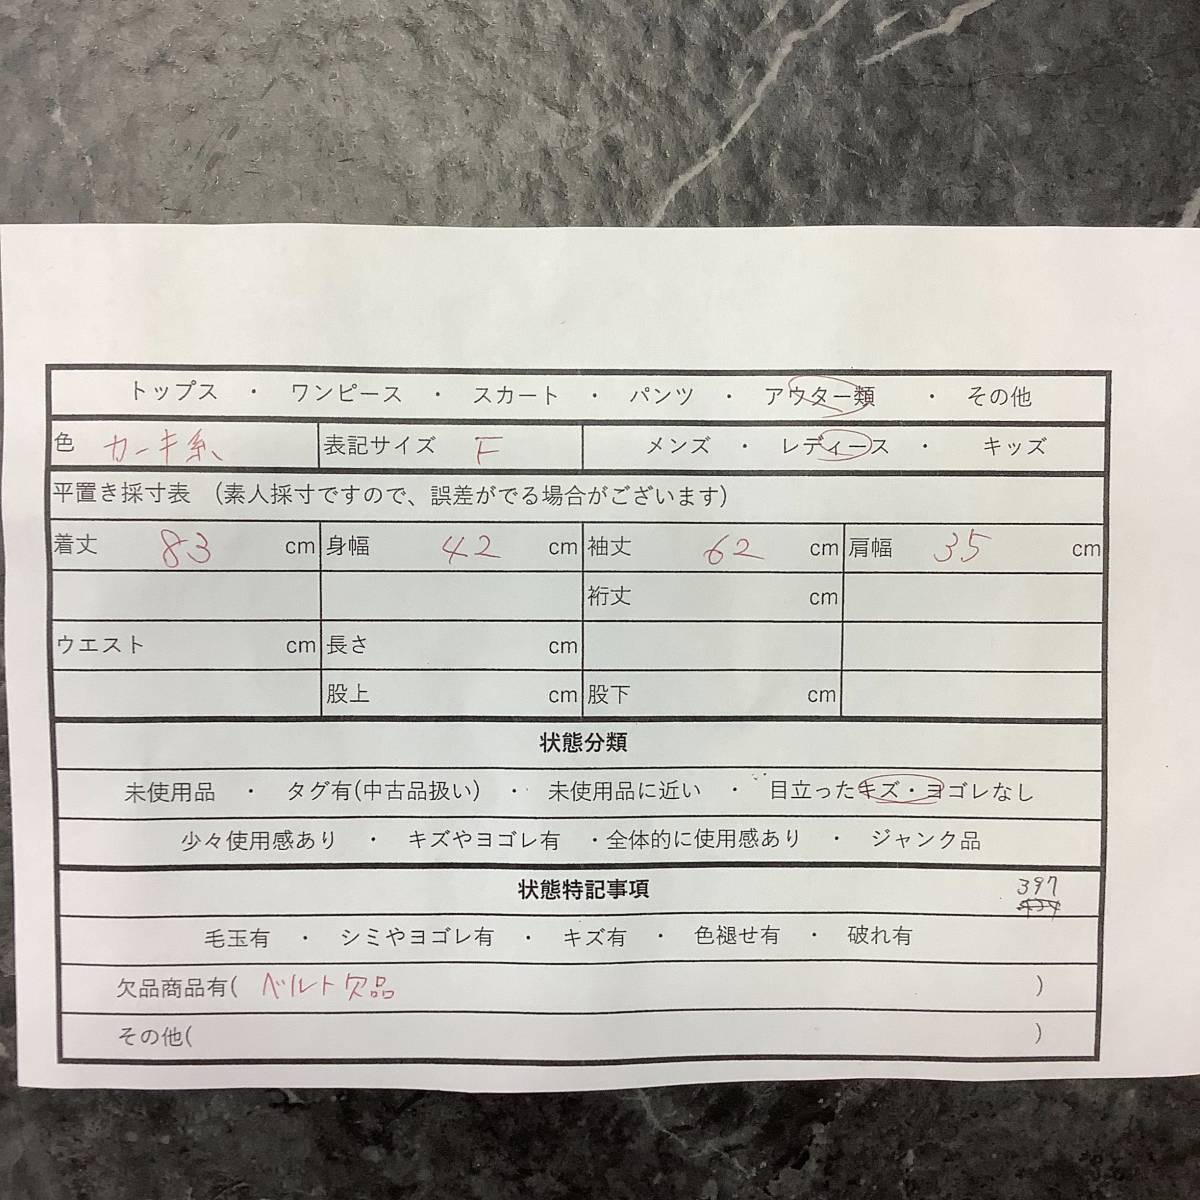 トップス ・ ワンピース ・ スカート ・ パンツ ・ アウター類 ・ その他
色 カーキ系、 表記サイズ F メンズ ・ レディース ・ キッズ
平置き採寸表 (素人採寸ですので、誤差がでる場合がございます)
着丈 83 cm 身幅 42 cm 袖丈 62 cm 肩幅 35 cm
裄丈 cm
ウエスト cm 長さ cm
股上 cm 股下 cm
状態分類
未使用品 ・ タグ有(中古品扱い) ・ 未使用品に近い ・ 目立ったキズ・ヨゴレなし
少々使用感あり ・ キズやヨゴレ有 ・全体的に使用感あり ・ ジャンク品
状態特記事項 397
毛玉有 ・ シミやヨゴレ有 ・ キズ有 ・ 色褪せ有 ・ 破れ有
欠品商品有( ベルト欠品 )
その他( )